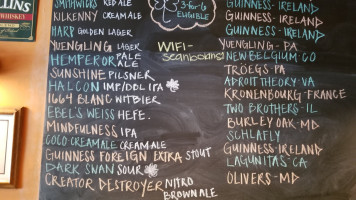 SMITHWICKS RED ALE GUINNESS-IRELAND
KILKENNY CREAM ALE GUINNESS-IRELAND
HARP GOLDEN LAGER GUINNESS-IRELAND
3-for-6
ELIGIBLE
LINS
WHISKEY
WIFI-
YUENGLING LAGER YUENGLING-PA
HEMPEROR PALE ALE NEW BELGIUM-CO
SUNSHINE PILSNER TROEGS-PA
HALCON IMP/DDL IPA ADROIT THEORY-VA
1664 BLANC WITBIER KRONENBOURG-FRANCE
EBEL'S WEISS HEFE. TWO BROTHERS-IL
MINDFULNESS IPA BURLEY OAK-MD
COCO CREAM ALE CREAM ALE SCHLAFLY
GUINNESS FOREIGN EXTRA STOUT GUINNESS-IRELAND
DARK SWAN SOUR LAGUNITAS-CA
CREATOR DESTROYER NITRO BROWN ALE OLIVERS-MD